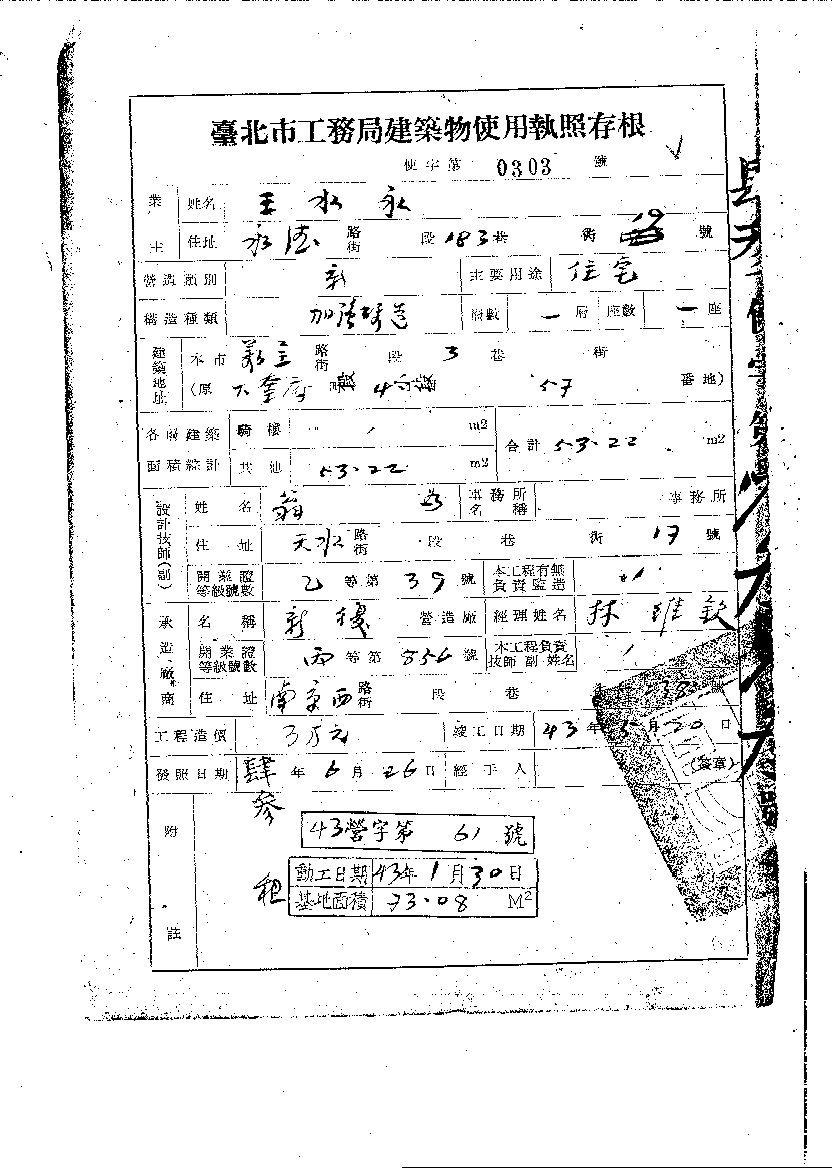 臺北市工務局建築物使用執照存根
使字第 0303 號
業主 姓名 王水永
住址 永德 路街 段 183 巷 衖 19 號
營造類別 新 主要用途 住宅
構造種類 加強磚造 層數 一層 座數 一座
建築地址 本市 路街 段 3 巷 衖
(原 下奎府 町段 4 57 番地)
各層建築面積綜計 騎樓 m2 合計 53.22 m2
其他 53.22 m2
設計技師(副) 姓名 翁 事務所名稱 事務所
住址 天水 路街 段 巷 衖 17 號
開業證等級號數 乙 等第 39 號 本工程有無負責監造
承造廠商 名稱 新 營造廠 經理姓名 林維欽
開業證等級號數 丙 等第 854 號 本工程負責技師副姓名
住址 南京西 路街 段 巷 號
工程造價 3万元 竣工日期 43 年 5 月 20 日
發照日期 肆參 年 6 月 26 日 經手人 (簽章)
附註
43營字第 61 號
動工日期 43年 1月 30日
基地面積 73.08 M2
租